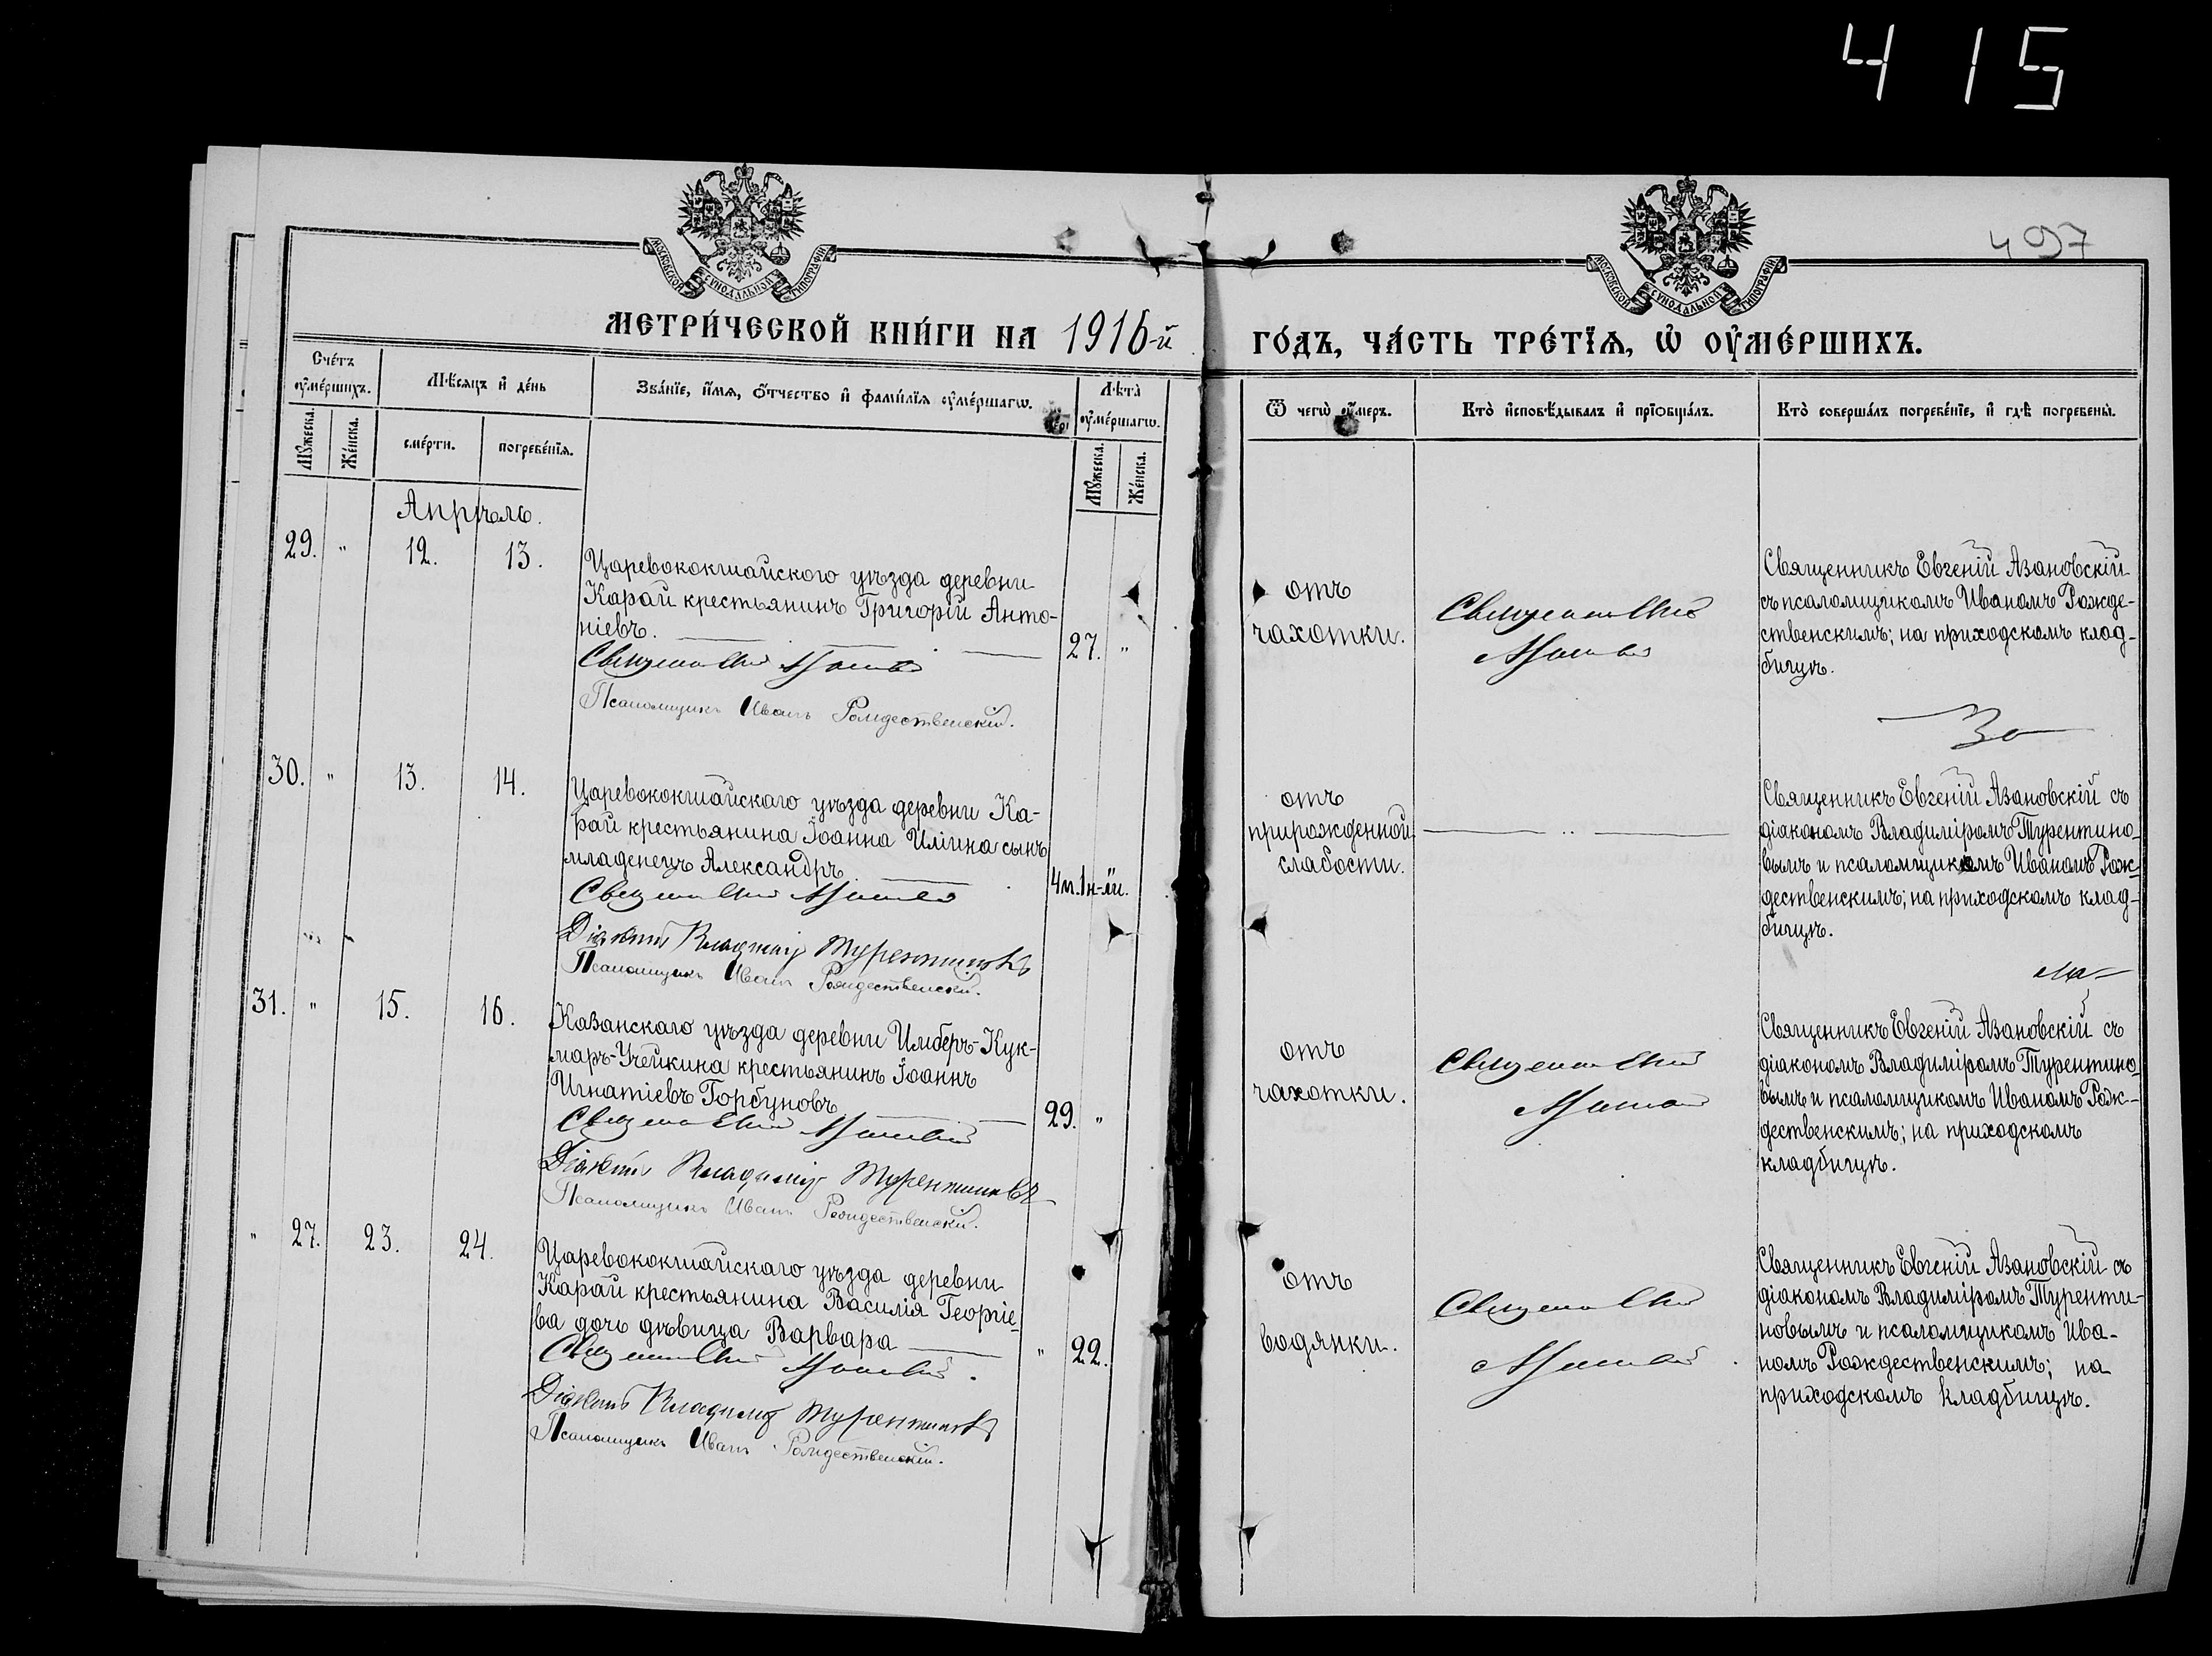 4 15
497
МОСКОВСКОЙ СѴНОДАЛЬНОЙ ТИПОГРАФІИ
МОСКОВСКОЙ СѴНОДАЛЬНОЙ ТИПОГРАФІИ
МЕТРИ́ЧЕСКОЙ КНИ́ГИ НА 1916-й
ГО́ДЪ, ЧА́СТЬ ТРЕ́ТЇѦ, Ѡ҆ ОУ҆МЕ́РШИХЪ.
Сче́тъ оу҆ме́ршихъ.
Мѣ́сяцъ и҆ де́нь
Зва́нїе, и҆́мѧ, ѻ҆́тчество и҆ фамѝлїѧ оу҆ме́ршагѡ.
Лѣ́та̀ оу҆ме́ршагѡ.
Ѿ чегѡ̀ оу҆́меръ.
Кто̀ и҆сповѣ́дывалъ и҆ прїѻбща́лъ.
Кто̀ соверша́лъ погребе́нїе, и҆ гдѣ̀ погребены̀.
Мꙋ́жеска.
Же́нска.
сме́рти.
погребе́нїѧ.
Мꙋ́жеска.
Же́нска.
Апрѣль.
29. " 12. 13.
Царевококшайского уѣзда деревни
Карай крестьянинъ Григорій Анто-
ніевъ.
27. "
Псаломщикъ Иванъ Рождественскій.
отъ
чахотки.
Священникъ Евгеній Азановскій
съ псаломщикомъ Иваномъ Рожде-
ственскимъ; на приходскомъ клад-
бищѣ.
30. " 13. 14.
Царевококшайскаго уѣзда деревни Ка-
рай крестьянина Іоанна Иліина сынъ
младенецъ Александръ
4м. 1н-ли.
Діаконъ Владиміръ Турентиновъ
Псаломщикъ Иванъ Рождественскій.
отъ
прирожденной
слабости.
Священникъ Евгеній Азановскій съ
діакономъ Владиміромъ Турентино-
вымъ и псаломщикомъ Иваномъ Рож-
дественскимъ; на приходскомъ клад-
бищѣ.
31. " 15. 16.
Казанскаго уѣзда деревни Имберъ-Кук-
маръ-Учейкина крестьянинъ Іоаннъ
Игнатіевъ Горбуновъ
29. "
Діаконъ Владиміръ Турентиновъ
Псаломщикъ Иванъ Рождественскій.
отъ
чахотки.
Священникъ Евгеній Азановскій съ
діакономъ Владиміромъ Турентино-
вымъ и псаломщикомъ Иваномъ Рож-
дественскимъ; на приходскомъ
кладбищѣ.
" 27. 23. 24.
Царевококшайскаго уѣзда деревни
Карай крестьянина Василія Георгіе-
ва дочь дѣвица Варвара
" 22.
Діаконъ Владиміръ Турентиновъ
Псаломщикъ Иванъ Рождественскій.
отъ
водянки.
Священникъ Евгеній Азановскій съ
діакономъ Владиміромъ Туренти-
новымъ и псаломщикомъ Ива-
номъ Рождественскимъ; на
приходскомъ кладбищѣ.